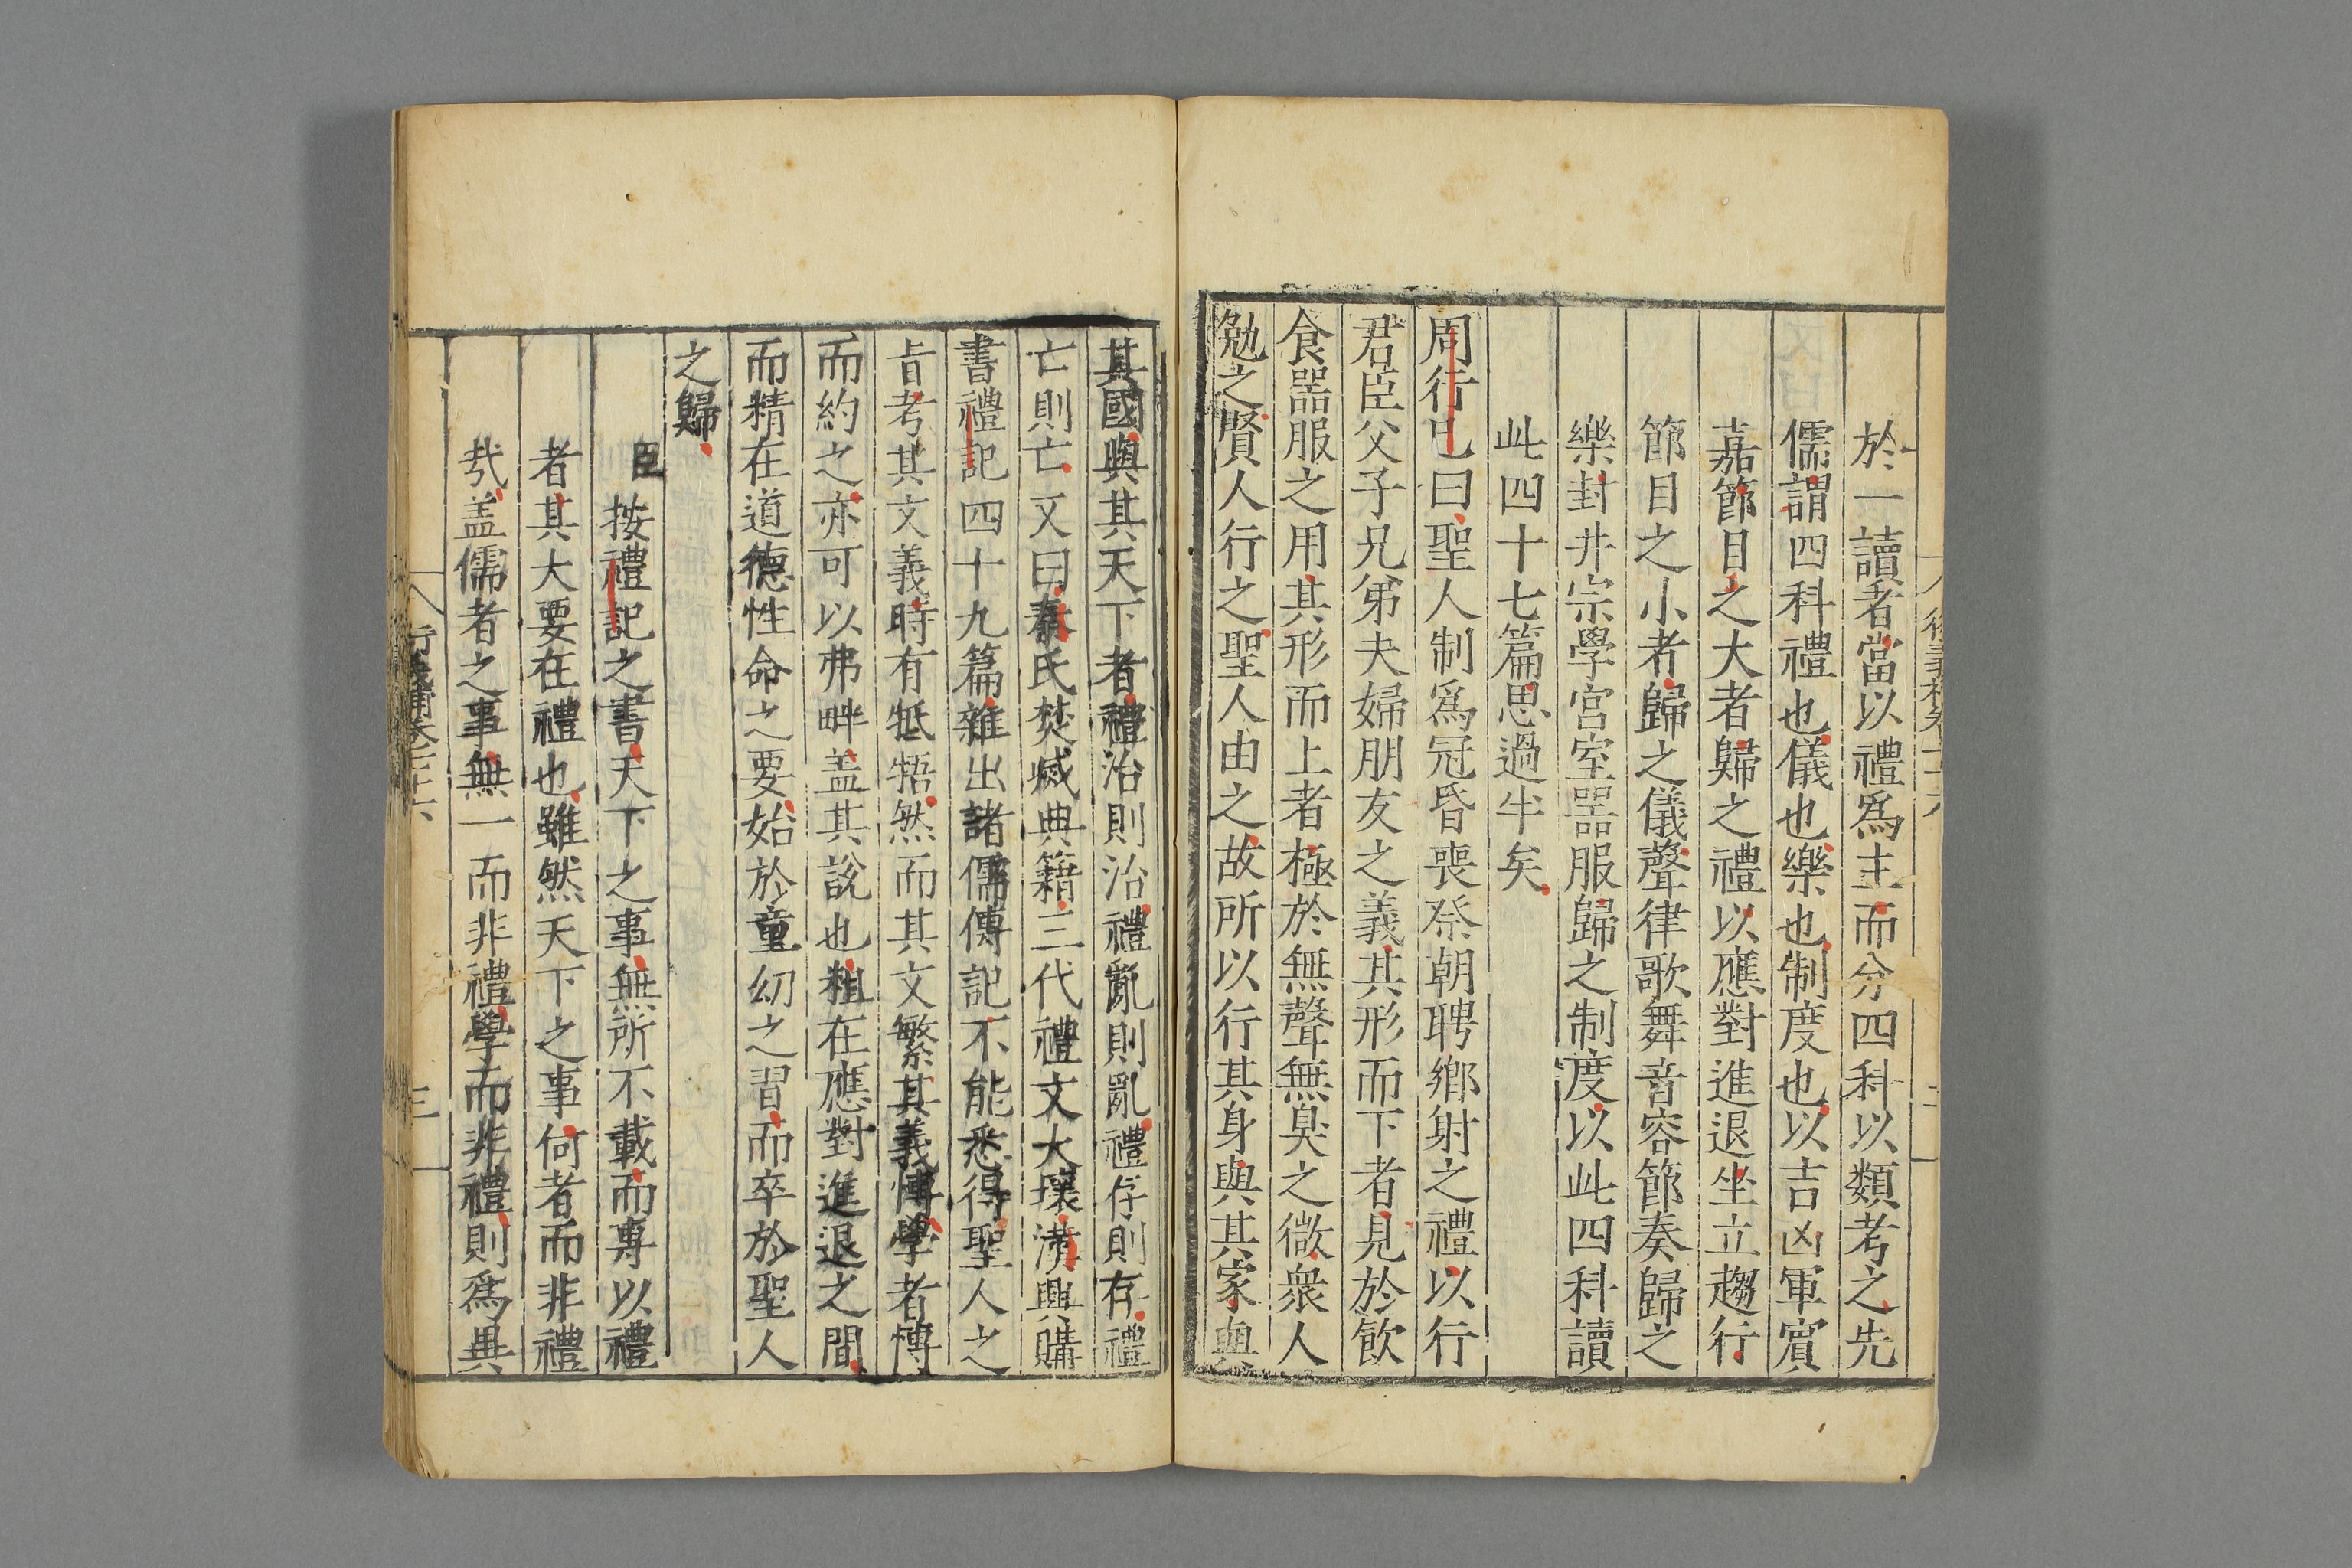 於一讀者當以禮爲主而分四科以類考之先
儒謂四科禮也儀也樂也制度也以吉凶軍賓
嘉節目之大者歸之禮以應對進退坐立趨行
節目之小者歸之儀聲律歌舞音容節奏歸之
樂封井宗學宮室器服歸之制度以此四科讀
此四十七篇思過半矣
周行巳曰聖人制爲冠昏喪祭朝聘鄉射之禮以行
君臣父子兄弟夫婦朋友之義其形而下者見於飲
食器服之用其形而上者極於無聲無臭之微衆人
勉之賢人行之聖人由之故所以行其身與其家與
其國與其天下者禮治則治禮亂則亂禮存則存禮
亡則亡又曰秦氏焚滅典籍三代禮文大壞漢興購
書禮記四十九篇雜出諸儒傳記不能悉得聖人之
旨考其文義時有牴牾然而其文繁其義愽學者愽
而約之亦可以弗畔盖其說也粗在應對進退之間
而精在道德性命之要始於童幼之習而卒於聖人
之歸
臣按禮記之書天下之事無所不載而專以禮
者其大要在禮也雖然天下之事何者而非禮
㢤盖儒者之事無一而非禮學而非禮則爲異
衍義補卷七十六
三